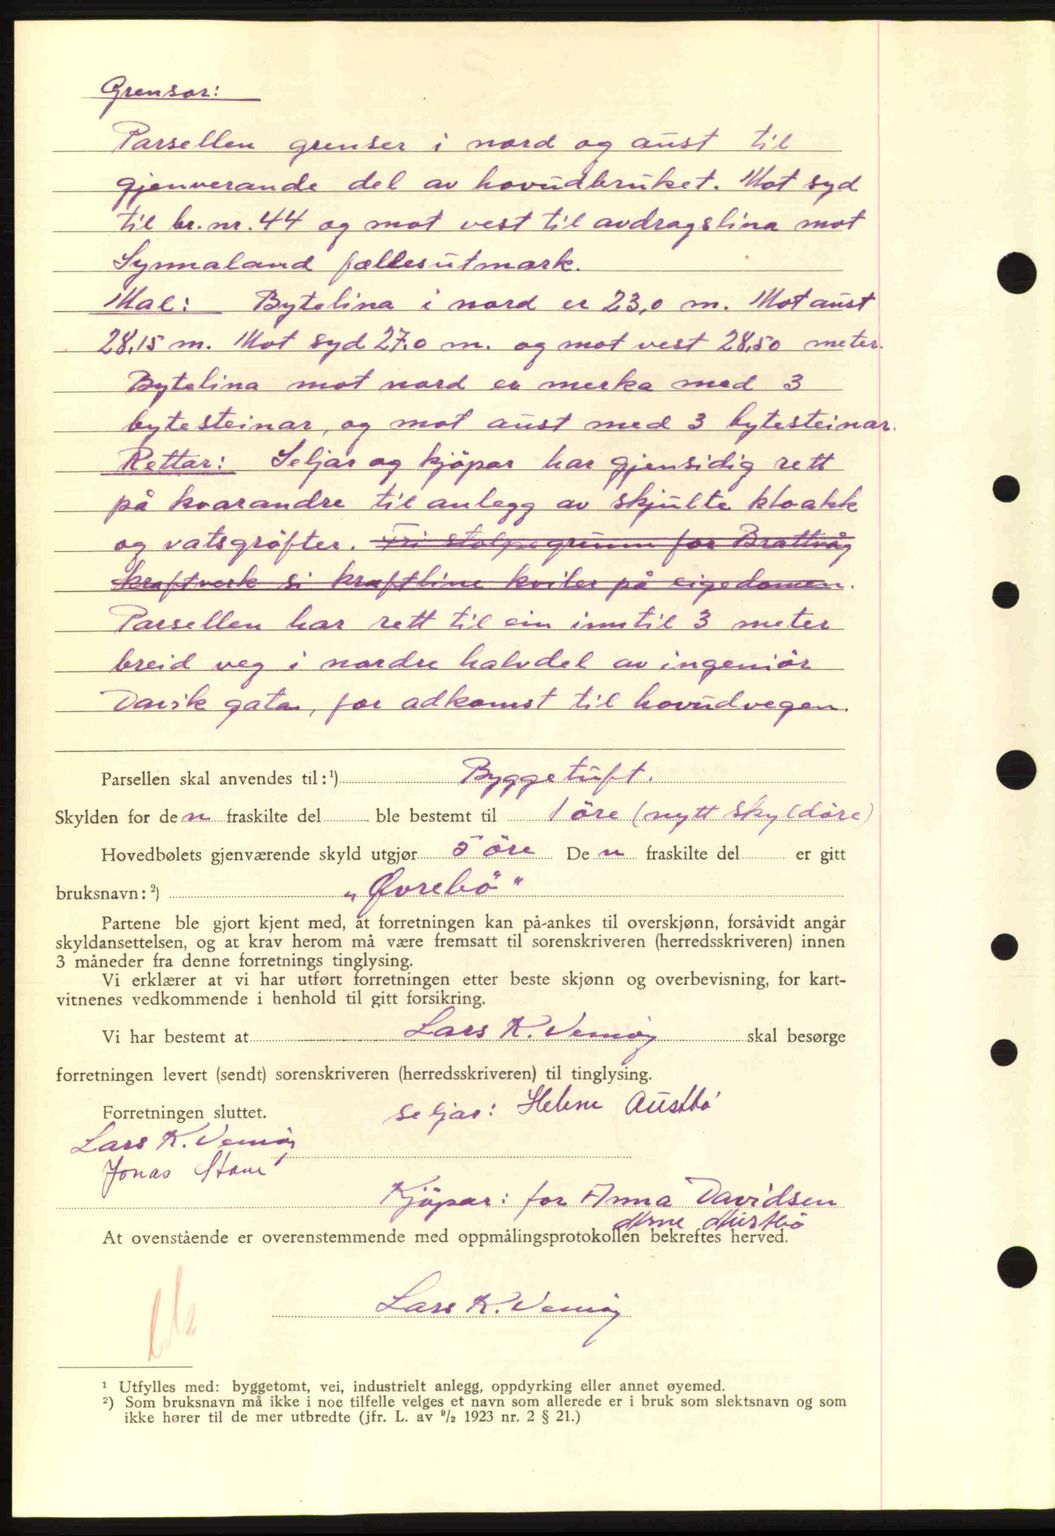 Grensor:
Parsellen grenser i nord og aust til
gjenverande del av hovudbruket. Mot syd
til br. nr. 44 og mot vest til avdragslina mot
Synnaland fællesutmark.
Mal: Bytelina i nord er 23,0 m. Mot aust
28,15 m. Mot syd 27.0 m. og mot vest 28,50 meter.
Bytelina mot nord er merka med 3
bytesteinar, og mot aust med 3 bytesteinar.
Rettar: Seljar og kjöpar har gjensidig rett
på kvarandre til anlegg av skjulte kloakk
og vatsgröfter. Tri stolpegrunn for Brattvåg
kraftverk si kraftline kviler på eigedomen.
Parsellen har rett til ein inntil 3 meter
breid veg i nordre halvdel av ingeniör
gata, for adkomst til hovudvegen.
Parsellen skal anvendes til:¹) Byggetuft.
Skylden for den fraskilte del ble bestemt til 1 öre (nytt skyldöre)
Hovedbølets gjenværende skyld utgjør 5 öre De n fraskilte del er gitt
bruksnavn: ²) „Øvrebö"
Partene ble gjort kjent med, at forretningen kan på-ankes til overskjønn, forsåvidt angår
skyldansettelsen, og at krav herom må være fremsatt til sorenskriveren (herredsskriveren) innen
3 måneder fra denne forretnings tinglysing.
Vi erklærer at vi har utført forretningen etter beste skjønn og overbevisning, for kart-
vitnenes vedkommende i henhold til gitt forsikring.
Vi har bestemt at Lars K. Vemöy skal besørge
forretningen levert (sendt) sorenskriveren (herredsskriveren) til tinglysing.
Forretningen sluttet. Seljar: Helene Austbö
Lars K. Vemöy
Jonas
Kjöpar: for Anna Davidsen
Arne Austbö
At ovenstående er overenstemmende med oppmålingsprotokollen bekreftes herved.
Lars K. Vemöy
¹ Utfylles med: byggetomt, vei, industrielt anlegg, oppdyrking eller annet øyemed.
²) Som bruksnavn må ikke i noe tilfelle velges et navn som allerede er i bruk som slektsnavn og som
ikke hører til de mer utbredte (jfr. L. av ⁹/₂ 1923 nr. 2 § 21.)